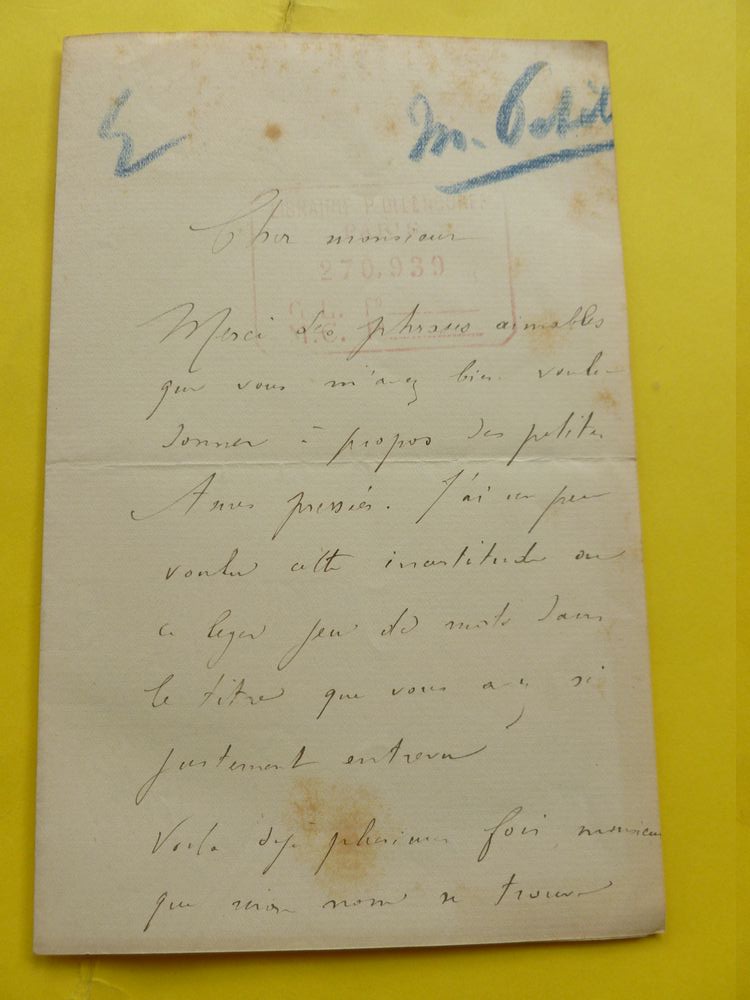 M.
LIBRAIRIE P. DILLANCOURT
PARIS
Cher monsieur
270.939
Merci des phrases aimables
que vous m'avez bien voulu
donner à propos des petites
Ames pressées. J'ai un peu
voulu cette incertitude ou
ce leger jeu de mots dans
le titre que vous avez si
justement entrevu
Voila deja plusieurs fois, monsieur
que mon nom se trouve